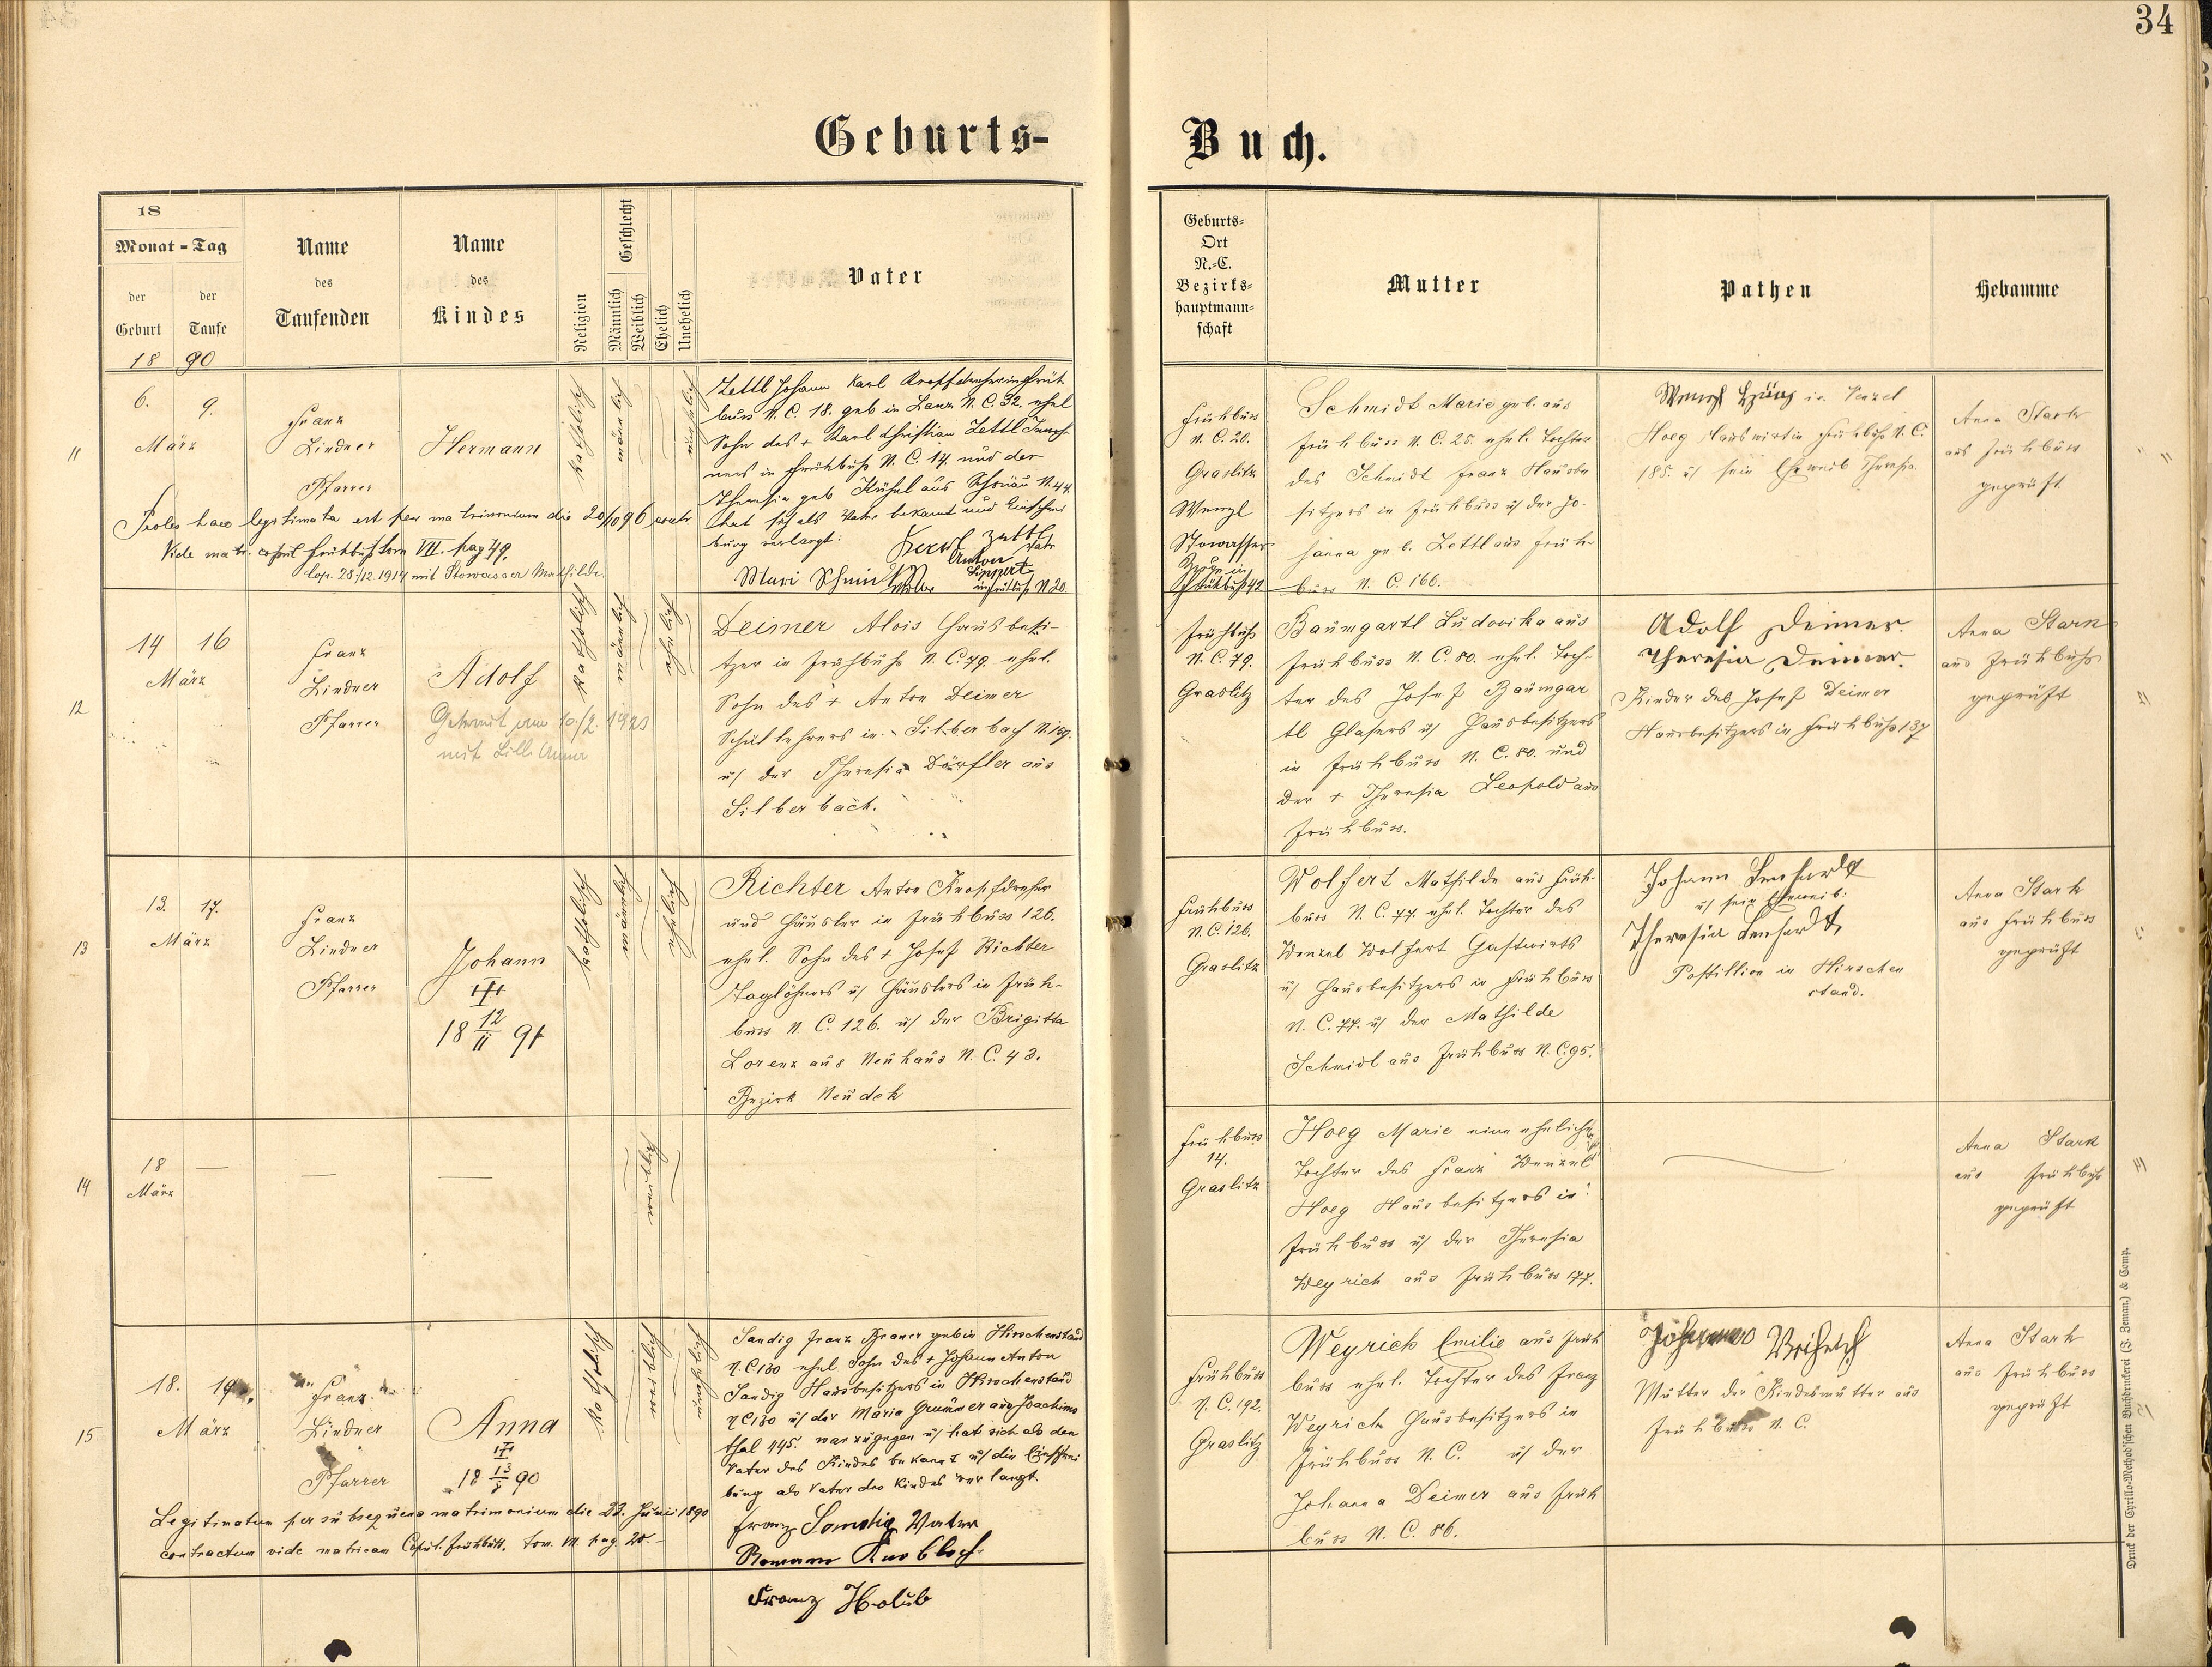 34
Geburts-
Buch.
18
Monat - Tag
der Geburt
der Taufe
18 90
Name des Taufenden
Name des Kindes
Religion
Geschlecht
Männlich
Weiblich
Ehelich
Unehelich
Vater
Geburts-
Ort
N.-C.
Bezirks-
hauptmann-
schaft
Mutter
Pathen
Hebamme
11
6. 9.
März
Franz
Lindner
Pfarrer
Hermann
katholisch
männlich
unehelich
Zettl Johann Karl
buss N. C. 18. geb in N. C. 32. ehel
Sohn des + Karl Christian Zettl
ners in Frühbuß N. C. 14. und der
Theresia geb Kühnl aus Schönau N. 44.
hat sich als Vater bekannt und Einschrei
bung verlangt:
Karl Zettl
Vater
Anton
Lippert
in Frühbuß N 20.
Mari Schmidt
Mutter
Proles haec legitimata est per matrimonium die 20/10 96 contr.
Vide matr. copul Frühbuß tom VII. pag 49.
Cop. 28./12.1914 mit Stowasser Mathilde.
Frühbuss
N. C. 20.
Graslitz
Wenzl
Stowasser
Zeuge in
Frühbuß 42
Schmidt Marie geb. aus
Frühbuss N. C. 25 ehel. Tochter
des Schmidt Franz Hausbe
sitzers in Frühbuss u/ der Jo-
hanna geb. Zettl aus Früh-
buss N. C. 166.
Wenzel
Hoeg Hauswirt in Frühbuß N. C.
185. u/ sein Eheweib Theresia.
Anna Stark
aus Frühbuss
geprüft
12
14 16
März
Franz
Lindner
Pfarrer
Adolf
Getraut am 10./2. 1923
mit Lill Anna
katholisch
männlich
ehelich
Deimer Alois Hausbesi-
tzer in Frühbuß N. C. 79. ehel.
Sohn des + Anton Deimer
Schullehrers in Silberbach N.
u/ der Theresia Dörfler aus
Silberbach.
Frühbuß
N. C. 79.
Graslitz
Baumgartl Ludovika aus
Frühbuss N. C. 80. ehel. Toch-
ter des Josef Baumgar
tl Glasers u/ Hausbesitzers
in Frühbuss N. C. 80. und
der + Theresia Leopold aus
Frühbuss.
Adolf Deimer.
Theresia Deimer.
Kinder des Josef Deimer
Hausbesitzers in Frühbuß 137
Anna Stark
aus Frühbuß
geprüft
13
13. 17.
März
Franz
Lindner
Pfarrer
Johann
†††
18 12/II 91
katholisch
männlich
ehelich
Richter Anton Knopfdreher
und Häusler in Frühbuss 126.
ehel. Sohn des + Josef Richter
Taglöhners u/ Häuslers in Früh-
buss N. C. 126. u/ der Brigitta
Lorenz aus Neuhaus N. C. 43.
Bezirk Neudek
Frühbuss
N. C. 126.
Graslitz
Wolfert Mathilde aus Früh-
buss N. C. 77. ehel. Tochter des
Wenzel Wolfert Gastwirts
u/ Hausbesitzers in Frühbuss
N. C. 77. u/ der Mathilde
Schmidl aus Frühbuss N. C. 95.
Johann Lenhardt
u/ sein Eheweib:
Theresia Lenhardt
Postillion in Hirschen
stand.
Anna Stark
aus Frühbuss
geprüft
14
18
März
weiblich
Frühbuss
14.
Graslitz
Hoeg Marie eine eheliche
Tochter des Franz Wenzel
Hoeg Hausbesitzers in
Frühbuss u/ der Theresia
Weyrich aus Frühbuss 177.
Anna Stark
aus Frühbuß
geprüft
15
18. 19.
März
Franz
Lindner
Pfarrer
Anna
†††
18 13/8 90
katholisch
weiblich
unehelich
Sandig Franz Brauer geb in Hirschenstand
N. C. 130 ehel Sohn des + Johann Anton
Sandig Hausbesitzers in Hirschenstand
N C 130 u/ der Maria Grummer aus Joachims
thal 445. war zugegen u/ hat sich als den
Vater des Kindes bekannt u/ die Einschrei
bung als Vater des Kindes verlangt.
Franz Sandig Vater
Romann Knobloch
Franz Holub
Legitimatum per subsequens matrimonium die 23. Junii 1890
contractum vide matricam Copul. Frühbuß. tom. VII. pag. 20.-
Frühbuss
N. C. 192.
Graslitz
Weyrich Emilie aus Früh
buss ehel. Tochter des Franz
Weyrich Hausbesitzers in
Frühbuss N. C. u/ der
Johanna Deimer aus Früh
buss N. C. 86.
Johanna Weihrich
Mutter der Kindesmutter aus
Frühbuss N. C.
Anna Stark
aus Frühbuss
geprüft
Druck der Cyrillo-Method'schen Buchdruckerei (J. Zeman.) & Comp.